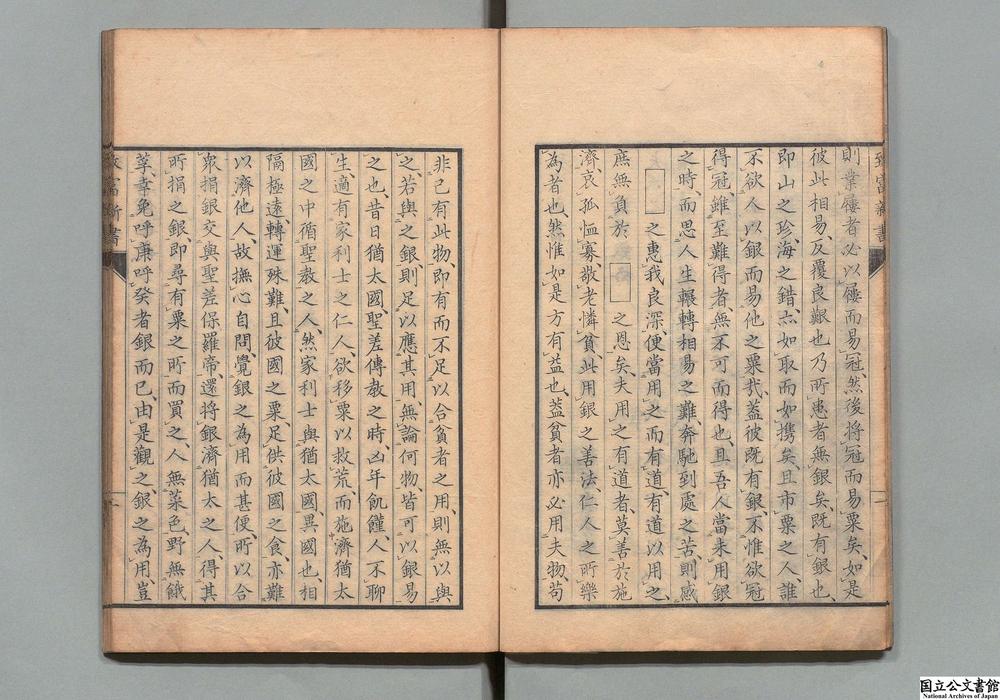 則業屨者必以屨而易冠然後将冠而易粟矣如是
彼此相易反覆良艱也乃所患者無銀矣既有銀也
即山之珍海之錯亦如取而如携矣且市粟之人誰
不欲人以銀而易他之粟哉蓋彼既有銀不惟欲冠
得冠雖至難得者無不可而得也且吾人當未用銀
之時而思人生輾轉相易之難奔馳到處之苦則感
之惠我良深便當用之而有道有道以用之
庶無負於 之恩矣夫用之有道者莫善於施
濟哀孤恤寡敬老憐貧此用銀之善法仁人之所樂
為者也然惟如是方有益也蓋貧者亦必用夫物苟
非已有此物即有而不足以合貧者之用則無以與
之若與之銀則足以應其用無論何物皆可以銀易
之也昔日猶太國聖差傳教之時凶年飢饉人不聊
生適有家利士之仁人欲移粟以救荒而施濟猶太
國之中循聖教之人然家利士與猶太國異國也相
隔極遠轉運殊難且彼國之粟足供彼國之食亦難
以濟他人故撫心自問覺銀之為用而甚便所以合
衆捐銀交與聖差保羅帝還将銀濟猶太之人得其
所捐之銀即尋有粟之所而買之人無菜色野無餓
莩幸免呼庚呼癸者銀而已由是觀之銀之為用豈
致富新書
国立公文書館
National Archives of Japan